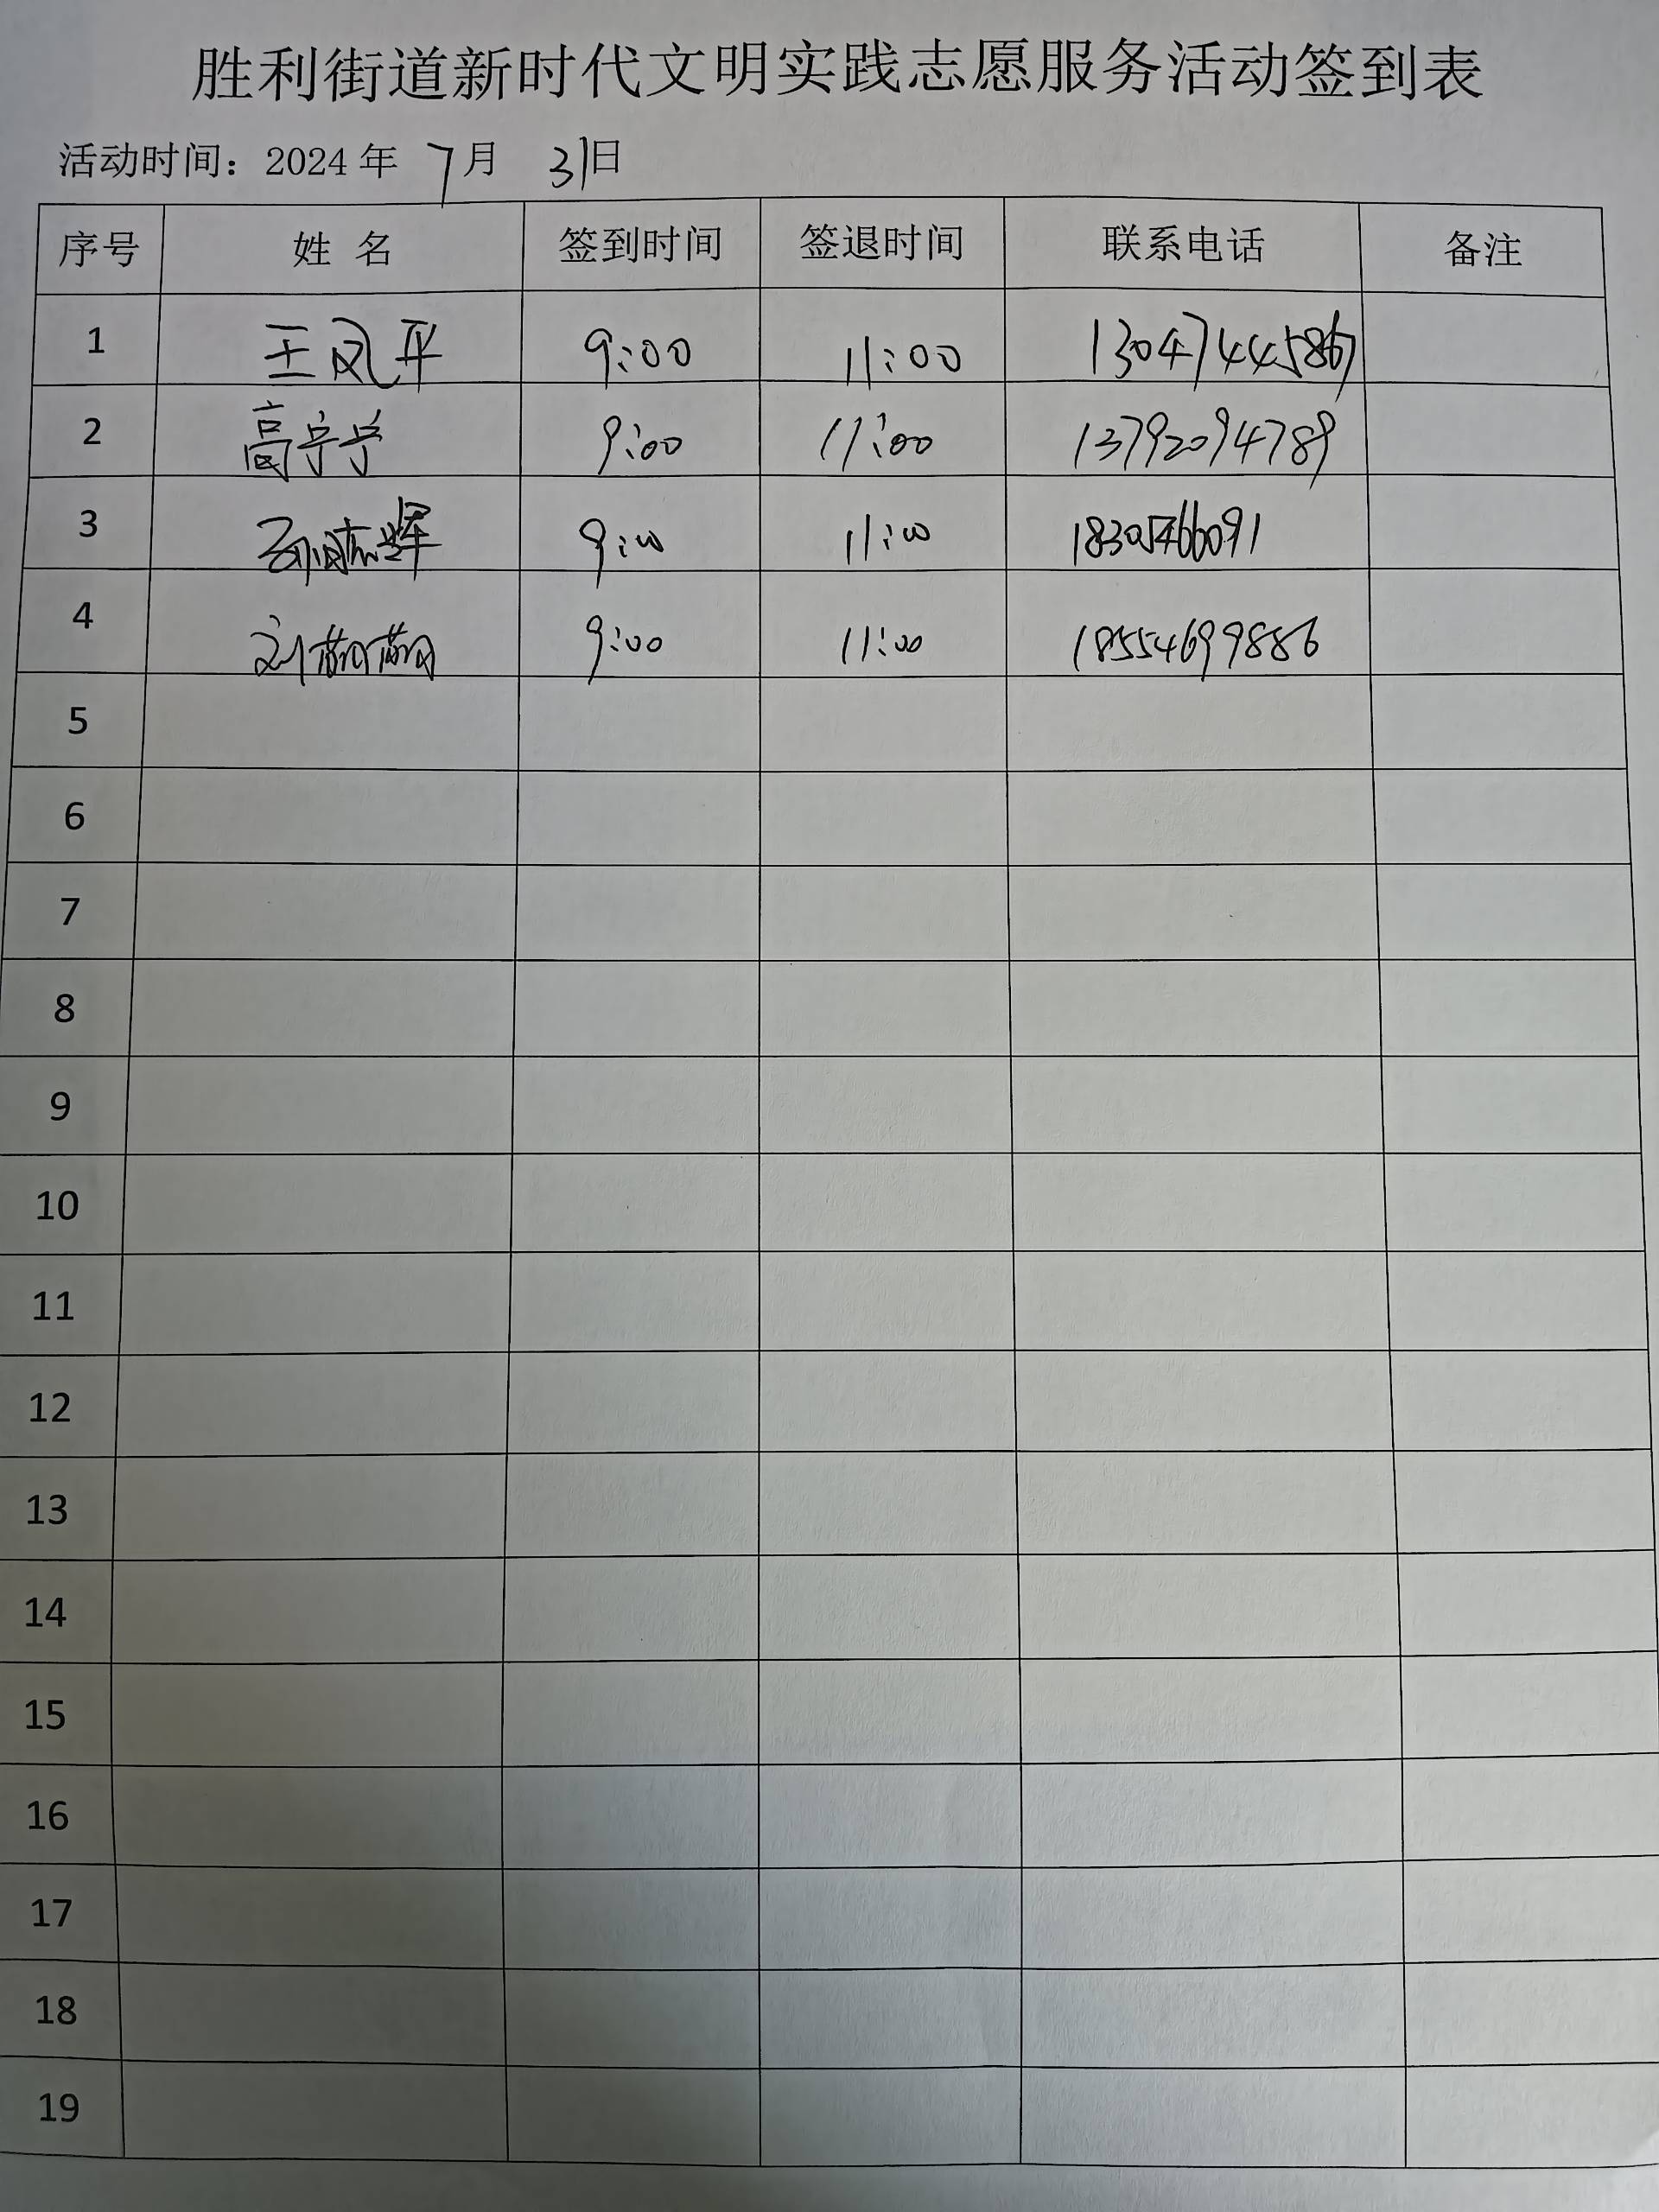 胜利街道新时代文明实践志愿服务活动签到表
活动时间：2024年 7月 31日
序号 姓 名 签到时间 签退时间 联系电话 备注
1 王风平 9:00 11:00 13047445867
2 高宁宁 9:00 11:00 13792094789
3 9:00 11:00 18305466091
4 刘萌萌 9:00 11:00 18554699886
5
6
7
8
9
10
11
12
13
14
15
16
17
18
19